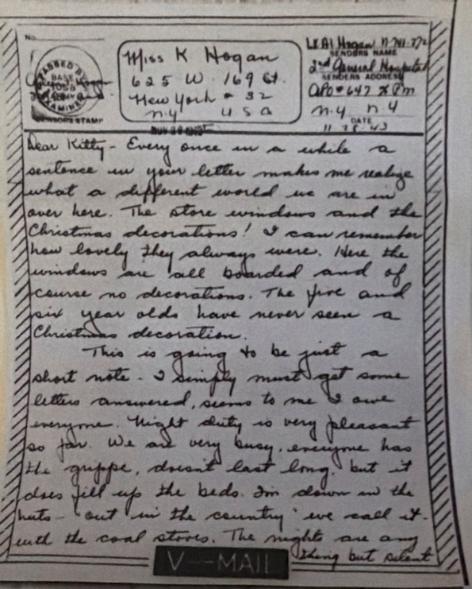 No.
PASSED BY
BASE
1056
ARMY
EXAMINER
CENSORS STAMP
Miss K Hogan
625 W. 169 St.
New York # 32
N.Y. U S A
Lt A I Hogan N-741-772
SENDERS NAME
2nd General Hospital
SENDERS ADDRESS
APO # 647 % Pm
N.Y. N.Y
DATE
11 28 43
Dear Kitty - Every once in a while a
sentence in your letter makes me realize
what a different world we are in
over here. The store windows and the
Christmas decorations! I can remember
how lovely they always were. Here the
windows are all boarded and of
course no decorations. The five and
six year olds have never seen a
Christmas decoration.
This is going to be just a
short note - I simply must get some
letters answered, seems to me I owe
everyone. Night duty is very pleasant
so far. We are very busy, everyone has
the grippe, doesn't last long, but it
does fill up the beds. I'm down in the
huts - "out in the country" we call it -
with the coal stoves. The nights are any
thing but silent
V---MAIL